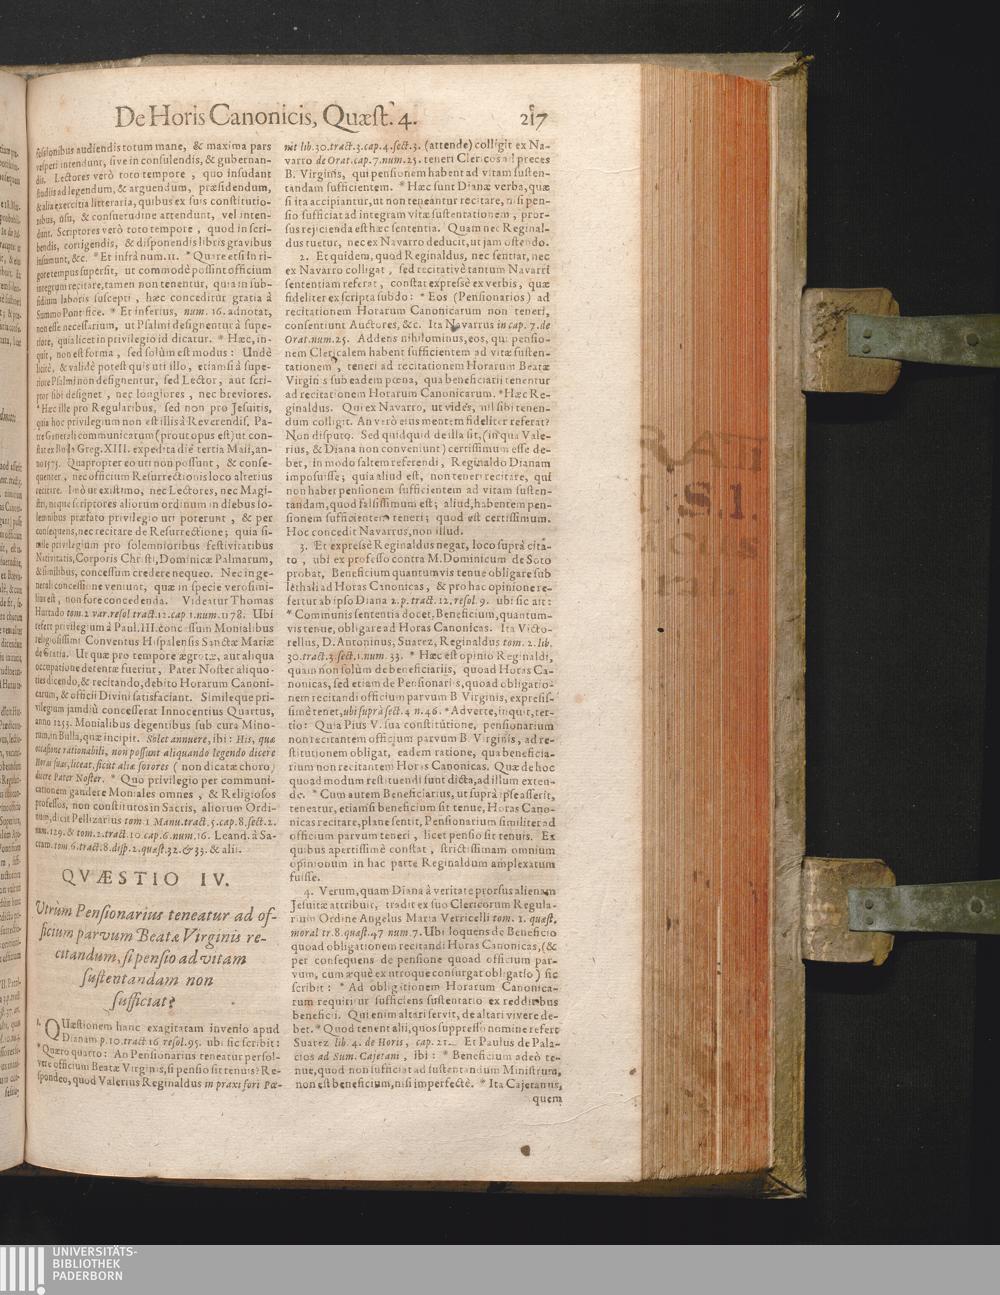 De Horis Canonicis, Quæst. 4. 217
fessionibus audiendis totum mane, & maxima pars
vesperi intendunt, sive in consulendis, & gubernan-
dis. Lectores verò toto tempore, quo insudant
studiis ad legendum, & arguendum, præsidendum,
& alia exercitia litteraria, quibus ex suis constitutio-
nibus, usu, & consuetudine attendunt, vel inten-
dunt. Scriptores verò toto tempore, quod in scri-
bendis, corrigendis, & disponendis libris gravibus
insumunt, &c. * Et infrà num. 11. * Quare etsi in ri-
gore tempus supersit, ut commodè possint officium
integrum recitare, tamen non tenentur, quia in sub-
sidium laboris suscepti, hæc conceditur gratia à
Summo Pontifice. * Et inferius, num. 16. adnotat,
non esse necessarium, ut Psalmi designentur à supe-
riore, quia licet in privilegio id dicatur. * Hæc, in-
quit, non est forma, sed solùm est modus: Undè
licitè, & validè potest quis uti illo, etiamsi à supe-
riore Psalmi non designentur, sed Lector, aut scri-
ptor sibi designet, nec longiores, nec breviores.
* Hæc ille pro Regularibus, sed non pro Jesuitis,
quia hoc privilegium non est illis à Reverendiss. Pa-
tre Generali communicatum (prout opus est) ut con-
stat ex Bulla Greg. XIII. expedita die tertia Maii, an-
no 1575. Quapropter eo uti non possunt, & conse-
quenter, nec officium Resurrectionis loco alterius
recitare. Imò ut existimo, nec Lectores, nec Magi-
stri, neque scriptores aliorum ordinum in diebus so-
lemnibus præfato privilegio uti poterunt, & per
consequens, nec recitare de Resurrectione; quia si-
mile privilegium pro solemnioribus festivitatibus
Nativitatis, Corporis Christi, Dominicæ Palmarum,
& similibus, concessum credere nequeo. Nec in ge-
nerali concessione veniunt, quæ in specie verosimi-
lius est, non fore concedenda. Videatur Thomas
Hurtado tom. 2. var. resol. tract. 12. cap. 1. num. 1178. Ubi
refert privilegium à Paul. III. concessum Monialibus
religiosissimi Conventus Hispalensis Sanctæ Mariæ
de Gratia. Ut quæ pro tempore ægrotæ, aut aliqua
occupatione detentæ fuerint, Pater Noster aliquo-
ties dicendo, & recitando, debito Horarum Canoni-
carum, & officii Divini satisfaciant. Simileque pri-
vilegium jamdiù concesserat Innocentius Quartus,
anno 1253. Monialibus degentibus sub cura Mino-
rum, in Bulla, quæ incipit. Solet annuere, ibi: His, quæ
occasione rationabili, non possunt aliquando legendo dicere
Horas suas, liceat, sicut aliæ sorores (non dicatæ choro)
dicere Pater Noster. * Quo privilegio per communi-
cationem gaudere Moniales omnes, & Religiosos
professos, non constitutos in Sacris, aliorum Ordi-
num, dicit Pellizarius tom. 1. Manu. tract. 5. cap. 8. sect. 2.
num. 129. & tom. 2. tract. 10. cap. 6. num. 16. Leand. à Sa-
cram. tom. 6. tract. 8. disp. 2. quæst. 32. & 33. & alii.
QVÆSTIO IV.
Utrùm Pensionarius teneatur ad of-
ficium parvum Beatæ Virginis re-
citandum, si pensio ad vitam
sustentandam non
sufficiat?
1. QUæstionem hanc exagitatam invenio apud
Dianam p. 10. tract. 16. resol. 95. ubi sic scribit:
* Quæro quarto: An Pensionarius teneatur persol-
vere officium Beatæ Virginis, si pensio sit tenuis? Re-
spondeo, quod Valerius Reginaldus in praxi fori Pœ-
nit. lib. 30. tract. 3. cap. 4. sect. 3. (attende) colligit ex Na-
varro de Orat. cap. 7. num. 25. teneri Clericos ad preces
B. Virginis, qui pensionem habent ad vitam susten-
tandam sufficientem. * Hæc sunt Dianæ verba, quæ
si ita accipiantur, ut non teneantur recitare, nisi pen-
sio sufficiat ad integram vitæ sustentationem, pror-
sus rejicienda est hæc sententia. Quam nec Reginal-
dus tuetur, nec ex Navarro deducit, ut jam ostendo.
2. Et quidem, quod Reginaldus, nec sentiat, nec
ex Navarro colligat, sed recitativè tantum Navarri
sententiam referat, constat expressè ex verbis, quæ
fideliter ex scripta subdo: * Eos (Pensionarios) ad
recitationem Horarum Canonicarum non teneri,
consentiunt Auctores, &c. Ita Navarrus in cap. 7. de
Orat. num. 25. Addens nihilominus, eos, qui pensio-
nem Clericalem habent sufficientem ad vitæ susten-
tationem, teneri ad recitationem Horarum Beatæ
Virginis sub eadem pœna, qua beneficiarii tenentur
ad recitationem Horarum Canonicarum. * Hæc Re-
ginaldus. Qui ex Navarro, ut vides, nil sibi tenen-
dum colligit. An verò eius mentem fideliter referat?
Non disputo. Sed quidquid de illa sit, (in qua Vale-
rius, & Diana non conveniunt) certissimum esse de-
bet, in modo saltem referendi, Reginaldo Dianam
imposuisse; quia aliud est, non teneri recitare, qui
non habet pensionem sufficientem ad vitam susten-
tandam, quod falsissimum est; aliud, habentem pen-
sionem sufficientem teneri; quod est certissimum.
Hoc concedit Navarrus, non illud.
3. Et expressè Reginaldus negat, loco suprà cita-
to, ubi ex professo contra M. Dominicum de Soto
probat, Beneficium quantumvis tenue obligare sub
lethali ad Horas Canonicas, & pro hac opinione re-
fertur ab ipso Diana 2. p. tract. 12. resol. 9. ubi sic ait:
* Communis sententia docet, Beneficium, quantum-
vis tenue, obligare ad Horas Canonicas. Ita Victo-
rellus, D. Antoninus, Suarez, Reginaldus tom. 2. lib.
30. tract. 3. sect. 1. num. 33. * Hæc est opinio Reginaldi,
quam non solùm de beneficiariis, quoad Horas Ca-
nonicas, sed etiam de Pensionariis, quoad obligatio-
nem recitandi officium parvum B. Virginis, expressis-
simè tenet, ubi suprà sect. 4. n. 46. * Adverte, inquit, ter-
tio: Quia Pius V. sua constitutione, pensionarium
non recitantem officium parvum B. Virginis, ad re-
stitutionem obligat, eadem ratione, qua beneficia-
rium non recitantem Horas Canonicas. Quæ de hoc
quoad modum restituendi sunt dicta, ad illum exten-
de. * Cum autem Beneficiarius, ut suprà ipse asserit,
teneatur, etiamsi beneficium sit tenue, Horas Cano-
nicas recitare, plane sentit, Pensionarium similiter ad
officium parvum teneri, licet pensio sit tenuis. Ex
quibus apertissimè constat, strictissimam omnium
opinionum in hac parte Reginaldum amplexatum
fuisse.
4. Verum, quam Diana à veritate prorsus alienam
Jesuitæ attribuit, tradit ex suo Clericorum Regula-
rium Ordine Angelus Maria Verricelli tom. 1. quæst.
moral tr. 8. quæst. 47 num. 7. Ubi loquens de Beneficio
quoad obligationem recitandi Horas Canonicas, (&
per consequens de pensione quoad officium par-
vum, cum æquè ex utroque consurgat obligatio) sic
scribit: * Ad obligationem Horarum Canonica-
rum requiritur sufficiens sustentatio ex redditibus
beneficii. Qui enim altari servit, de altari vivere de-
bet. * Quod tenent alii, quos suppresso nomine refert
Suarez lib. 4. de Horis, cap. 21. Et Paulus de Pala-
cios ad Sum. Cajetani, ibi: * Beneficium adeò te-
nue, quod non sufficiat ad sustentandum Ministrum,
non est beneficium, nisi imperfectè. * Ita Cajetanus,
quem
UNIVERSITÄTS-
BIBLIOTHEK
PADERBORN